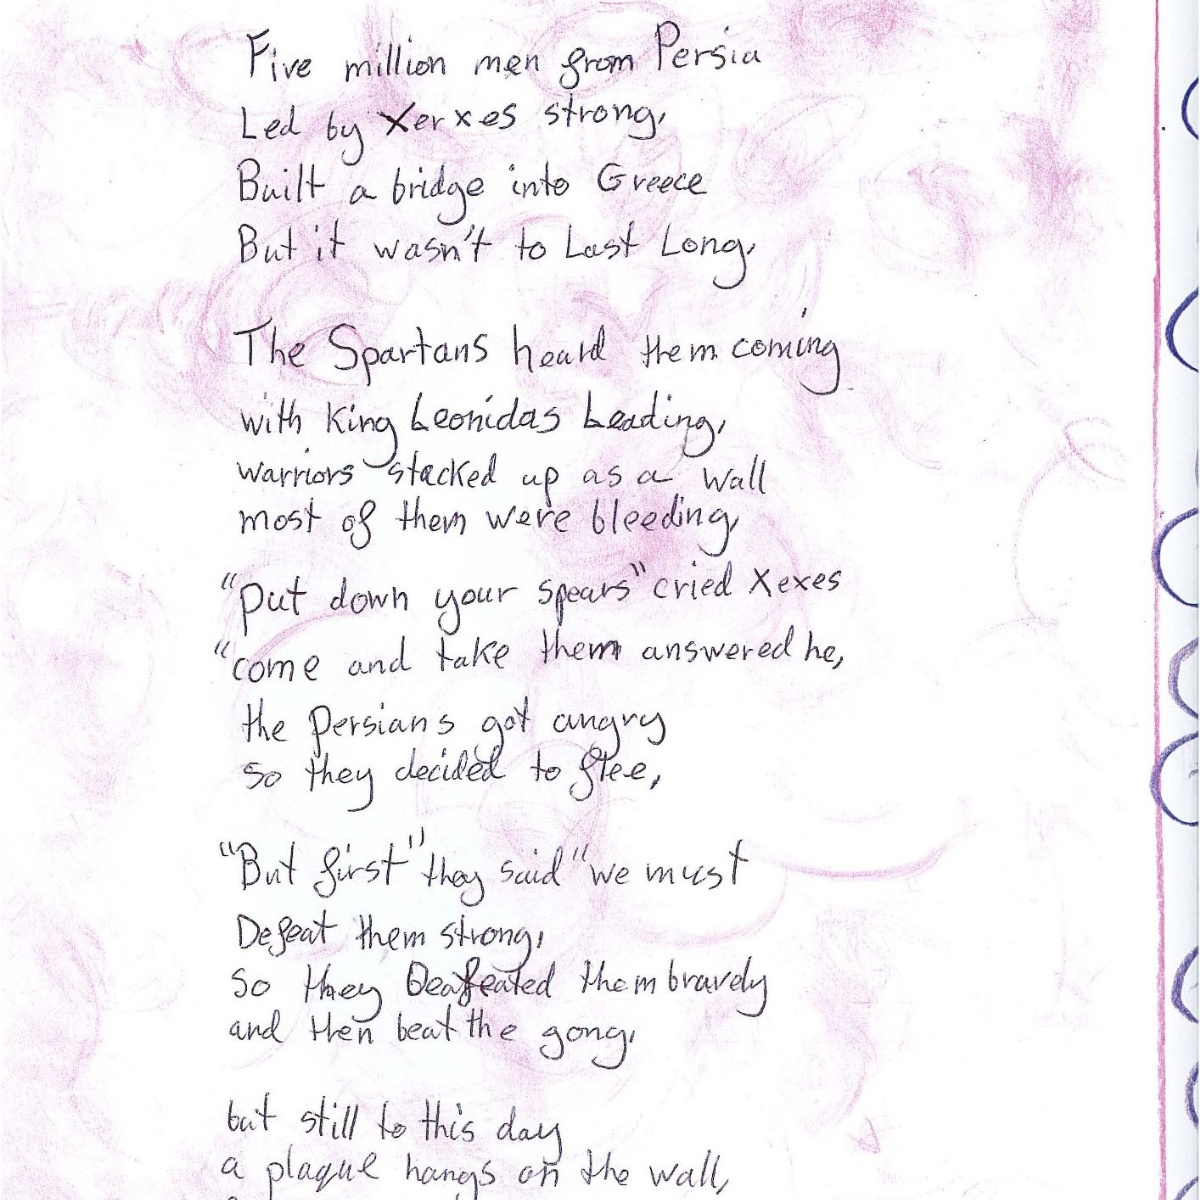 Five million men from Persia
Led by Xerxes strong,
Built a bridge into Greece
But it wasn't to Last Long,
The Spartans heard them coming
with King Leonidas Leading,
warriors stacked up as a wall
most of them were bleeding,
"Put down your spears" cried Xexes
"come and take them answered he,
the Persians got angry
so they decided to flee,
"But first" they said "we must
Defeat them strong,
so they Deafeated them bravely
and then beat the gong,
but still to this day
a plaque hangs on the wall,